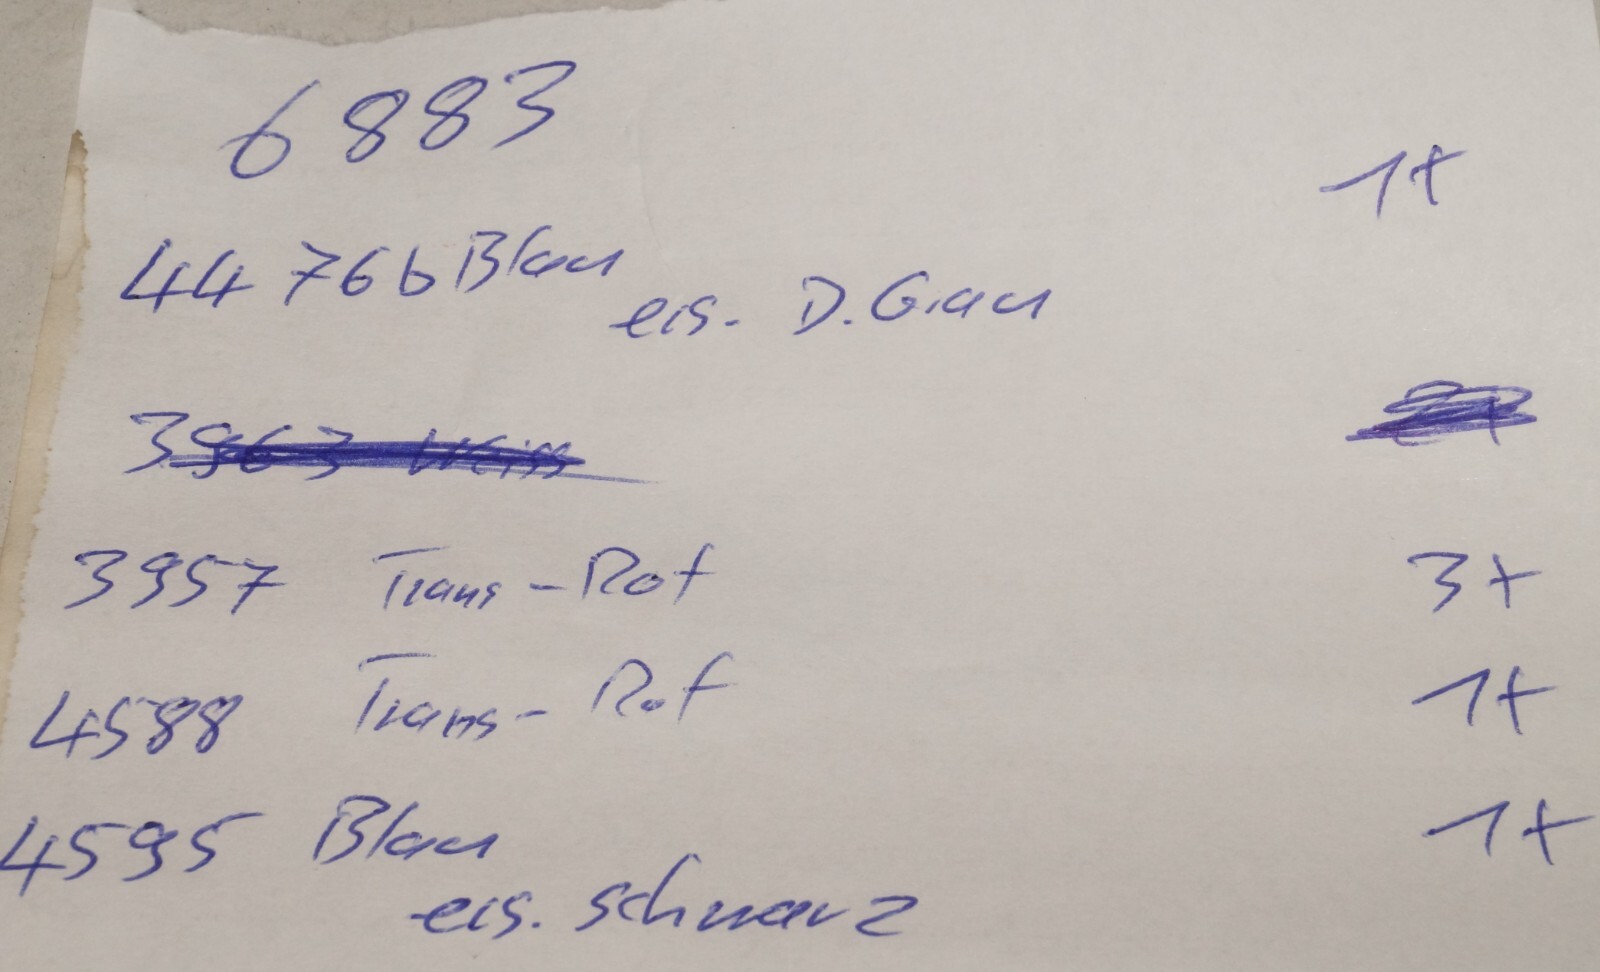 6883
1x
4476b Blau
ers. D.Grau
3963 Weiss
3957 Trans-Rot 3x
4588 Trans-Rot 1x
4595 Blau 1x
ers. schwarz